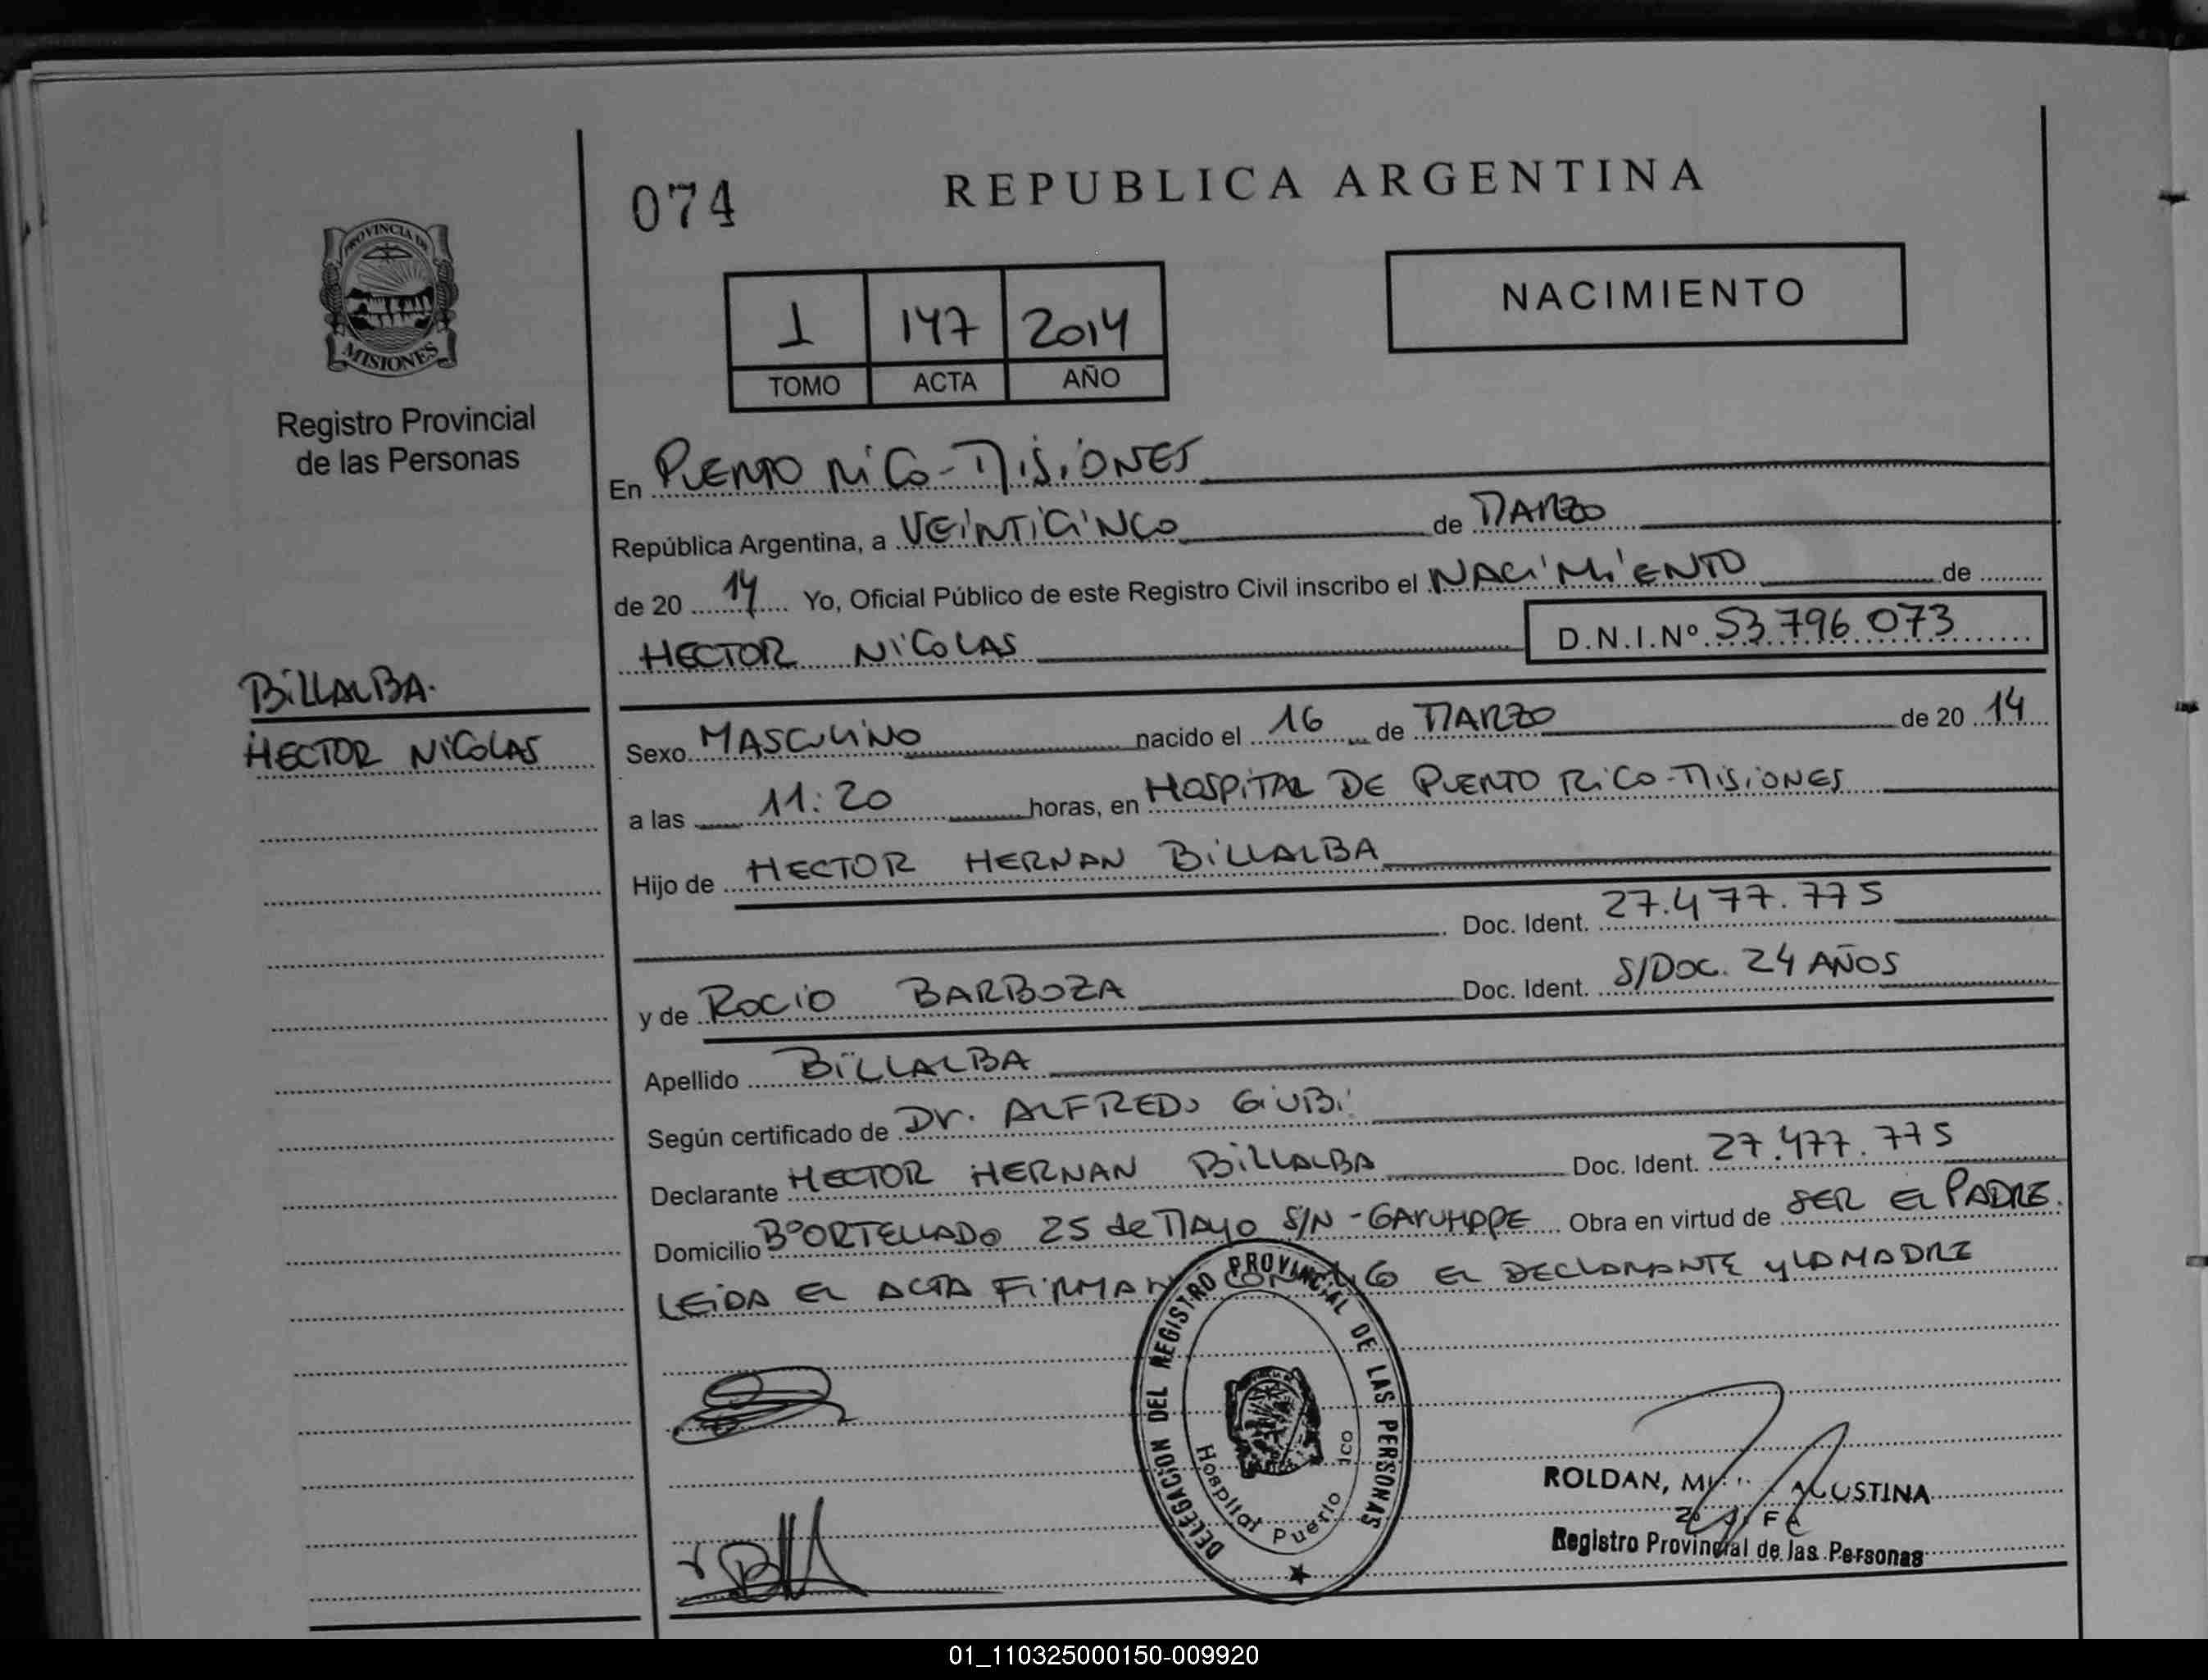 074
REPUBLICA ARGENTINA
PROVINCIA DE
MISIONES
Registro Provincial
de las Personas
NACIMIENTO
1 147 2014
TOMO ACTA AÑO
En PUERTO RICO - MISIONES
República Argentina, a VEINTICINCO de MARZO
de 2014 Yo, Oficial Público de este Registro Civil inscribo el NACIMIENTO de
HECTOR NICOLAS D.N.I.Nº 53.796.073
BILLALBA.
HECTOR NICOLAS
Sexo MASCULINO nacido el 16 de MARZO de 2014
a las 11:20 horas, en HOSPITAL DE PUERTO RICO - MISIONES
Hijo de HECTOR HERNAN BILLALBA
Doc. Ident. 27.477.775
y de ROCIO BARBOZA Doc. Ident. S/DOC. 24 AÑOS
Apellido BILLALBA
Según certificado de Dr. ALFREDO GIUBI
Declarante HECTOR HERNAN BILLALBA Doc. Ident. 27.477.775
Domicilio BºORTELLADO 25 de MAYO S/N - GARUHAPE Obra en virtud de SER EL PADRE.
LEIDA EL ACTA FIRMAN CONMIGO EL DECLARANTE y LA MADRE
DELEGACION DEL REGISTRO PROVINCIAL DE LAS PERSONAS
Hospital Puerto
ROLDAN, AGUSTINA
Registro Provincial de las Personas
01_110325000150-009920